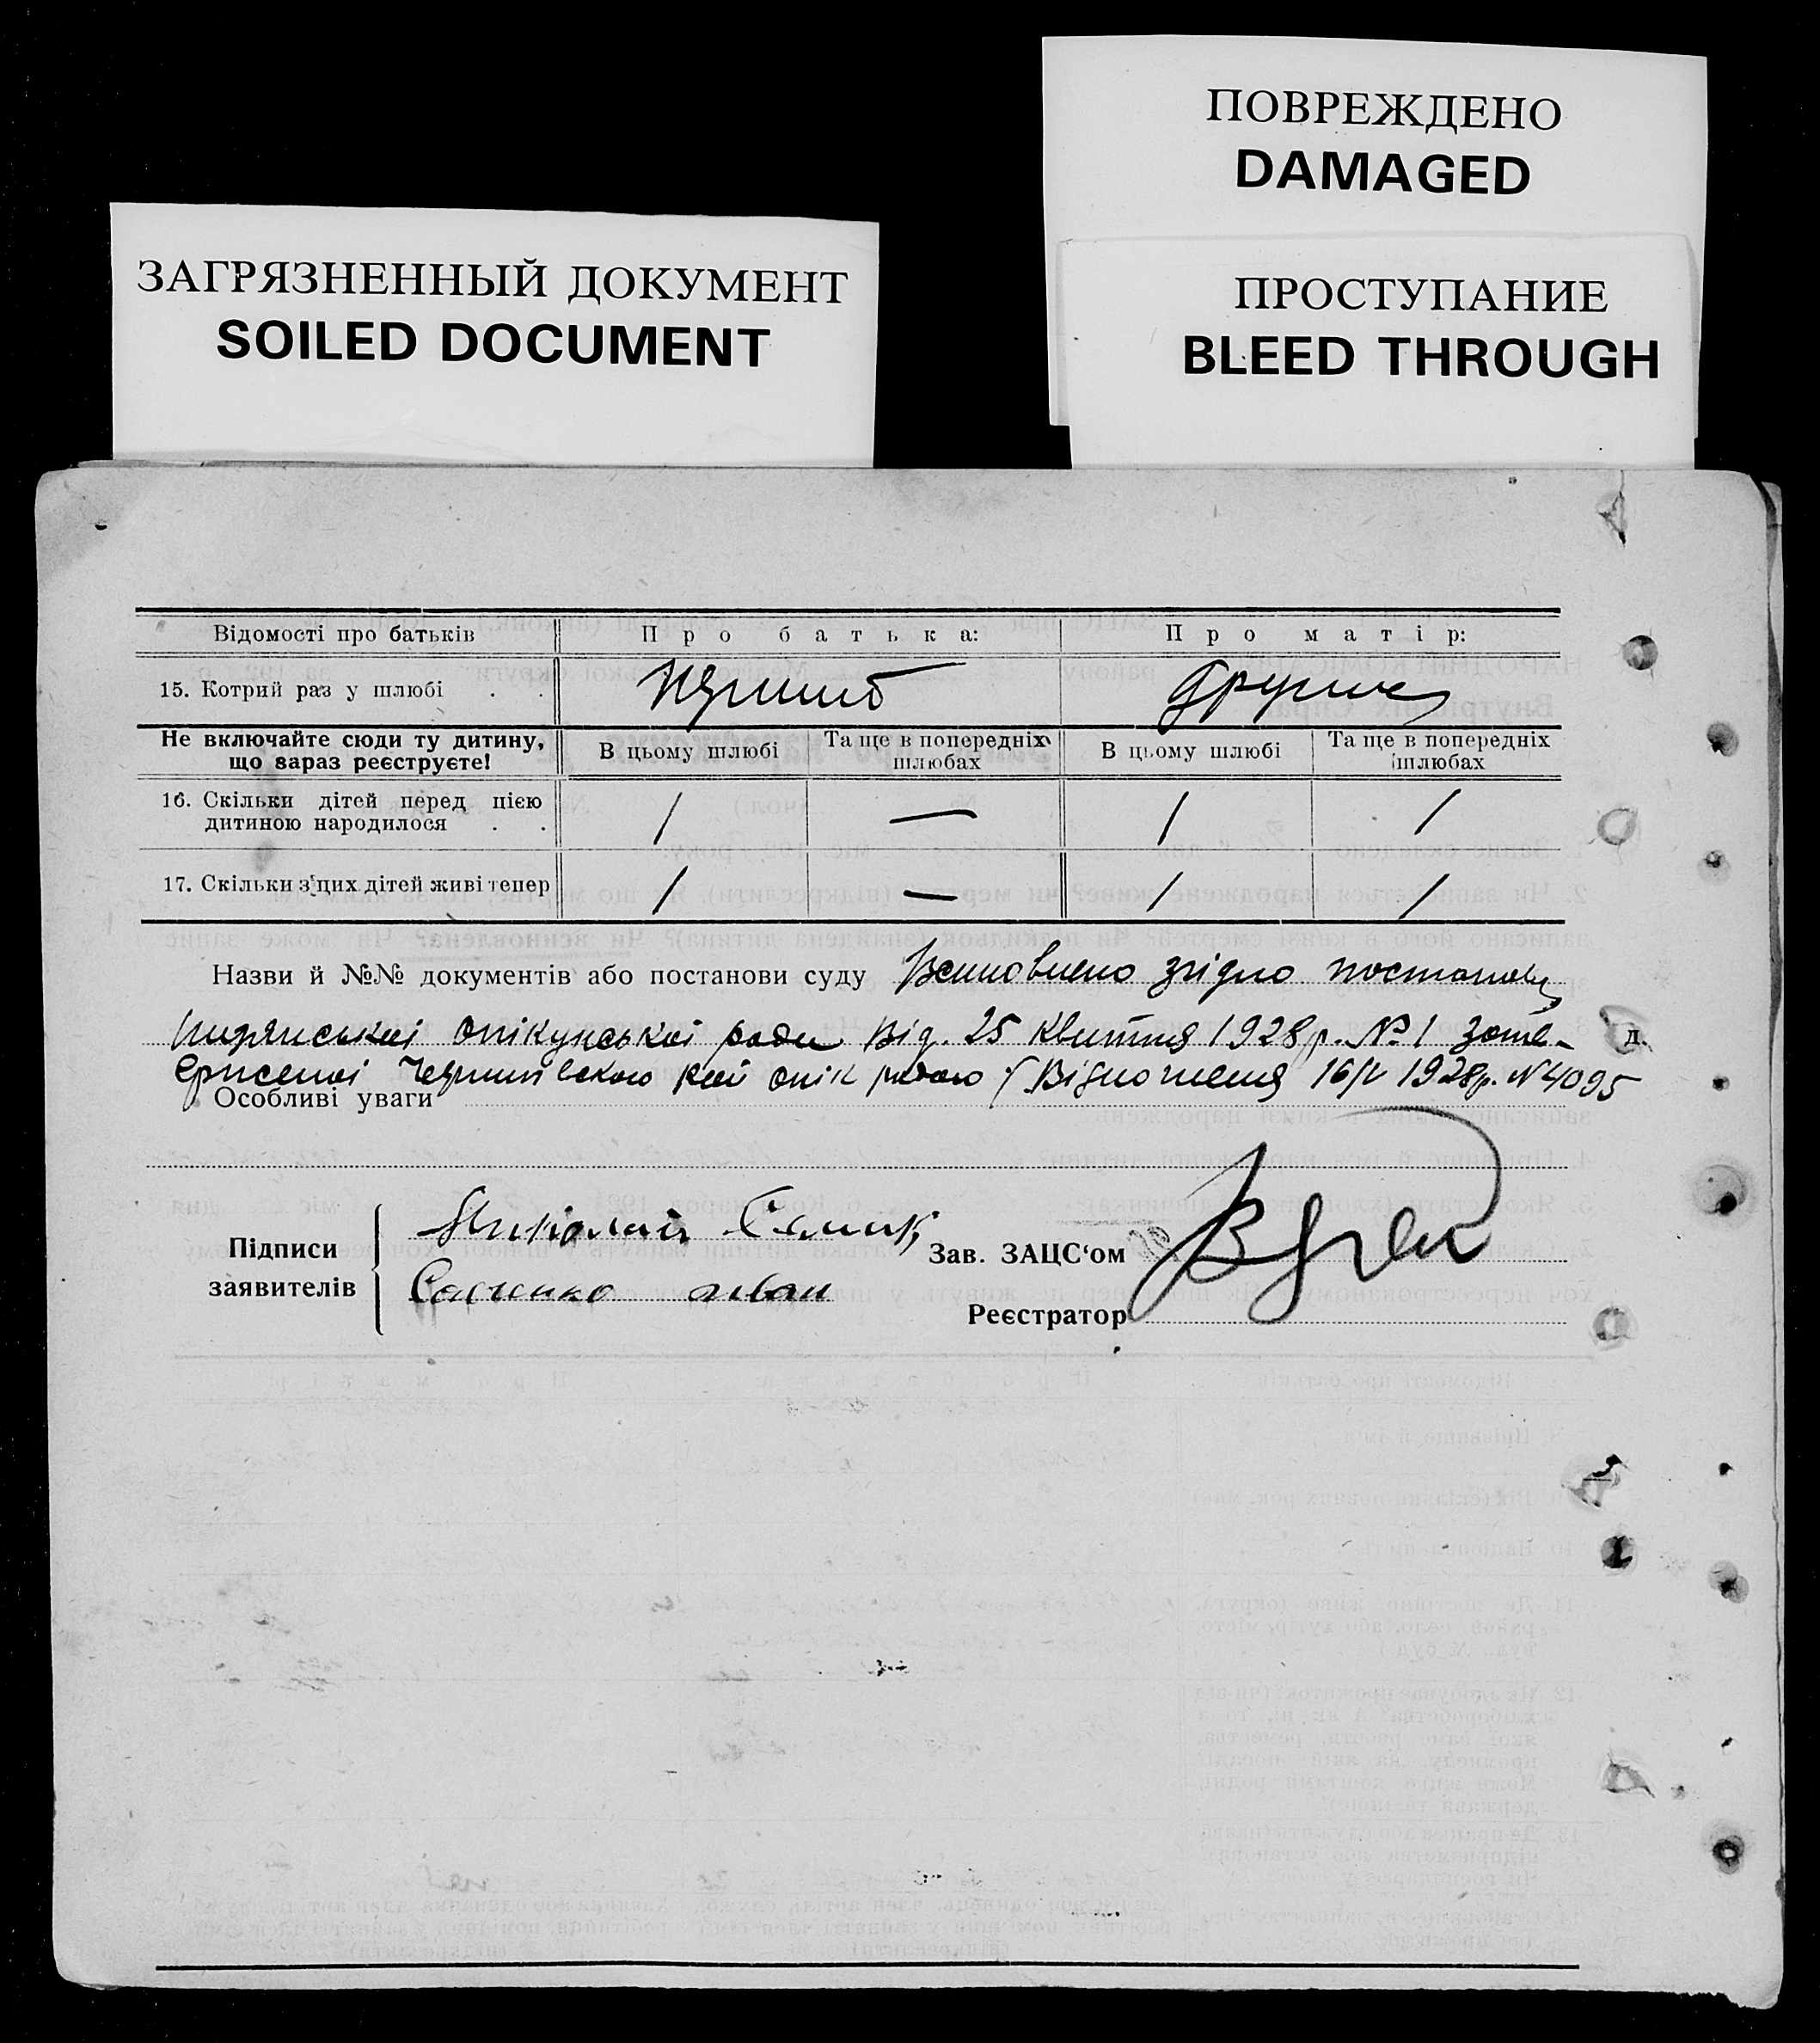 ПОВРЕЖДЕНО
DAMAGED
ЗАГРЯЗНЕННЫЙ ДОКУМЕНТ
SOILED DOCUMENT
ПРОСТУПАНИЕ
BLEED THROUGH
Відомості про батьків Про батька: Про матір:
15. Котрий раз у шлюбі . .
Не включайте сюди ту дитину, що зараз реєструєте! В цьому шлюбі Та ще в попередніх шлюбах В цьому шлюбі Та ще в попередніх шлюбах
16. Скільки дітей перед цією
дитиною народилося . . 1 — 1 1
17. Скільки з цих дітей живі тепер 1 — 1 1
Назви й №№ документів або постанови суду Всиновлено згідно постанови
опікунської ради від. 25 квітня 1928р. №1 затв- д.
опік радою (Відношення 16/V 1928р. N4095
Особливі уваги
Підписи
заявителів
Николай
Савченко Иван
Зав. ЗАЦС‘ом
Реєстратор